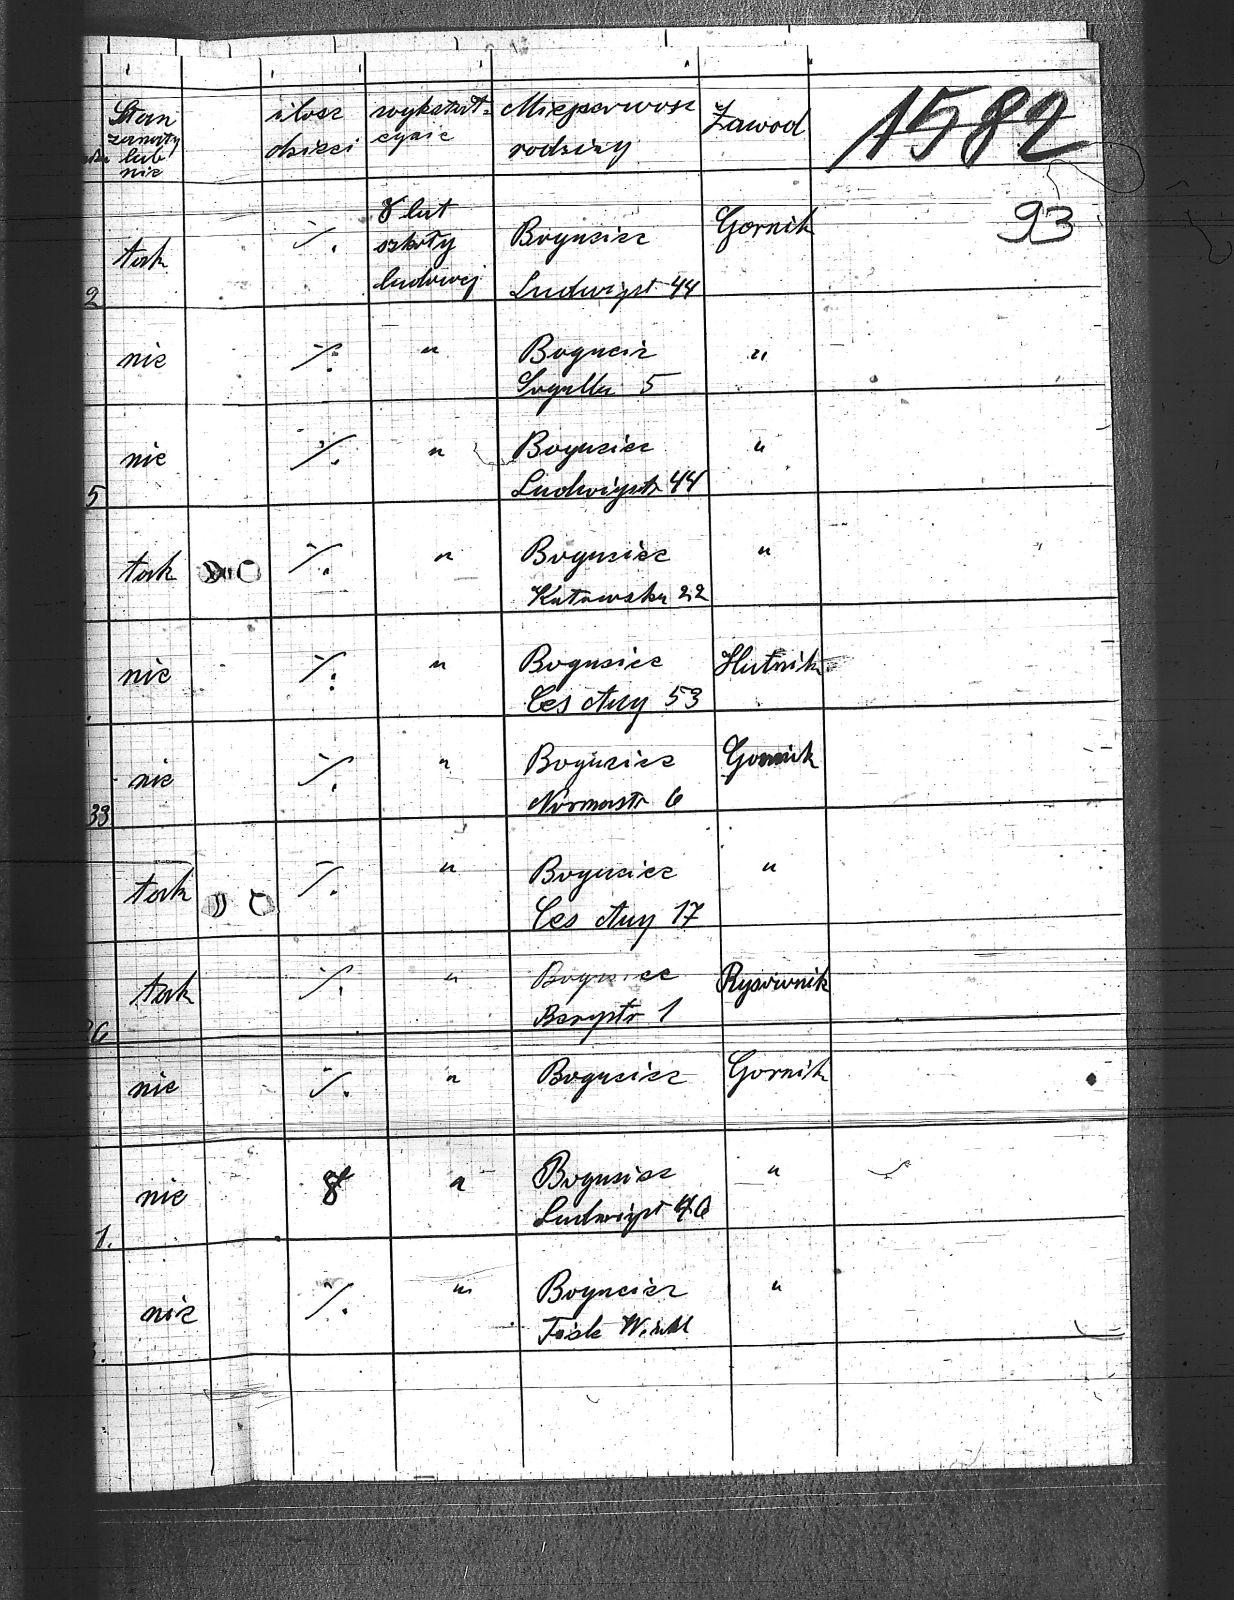 Stan żonaty lub nie | ilosz dzieci | wykształ=cynie | Miejscrwosc rodziny | Zawod | 1582
93
tak | ·/. | 8 lat szkoły ludowej | Bogucice Ludwigst 44 | Gornik
2
nie | ·/. | " | Bogucice 5 | "
nie | ·/. | " | Bogucice Ludwigstr 44 | "
5
tak | ·/. | " | Bogucice Katowska 22 | "
nie | ·/. | " | Bogucice Ces Auy 53 | Hutnik
nie | ·/. | " | Bogucice Normastr 6 | Gornik
33
tak | ·/. | " | Bogucice Ces Auy 17 | "
tak | ·/. | " | Bogucice Bergstr 1 | Rysownik
6
nie | ·/. | " | Bogucice | Gornik
nie | 8 | " | Bogucice Ludwigst 40 | "
1.
nie | ·/. | " | Bogucice | "